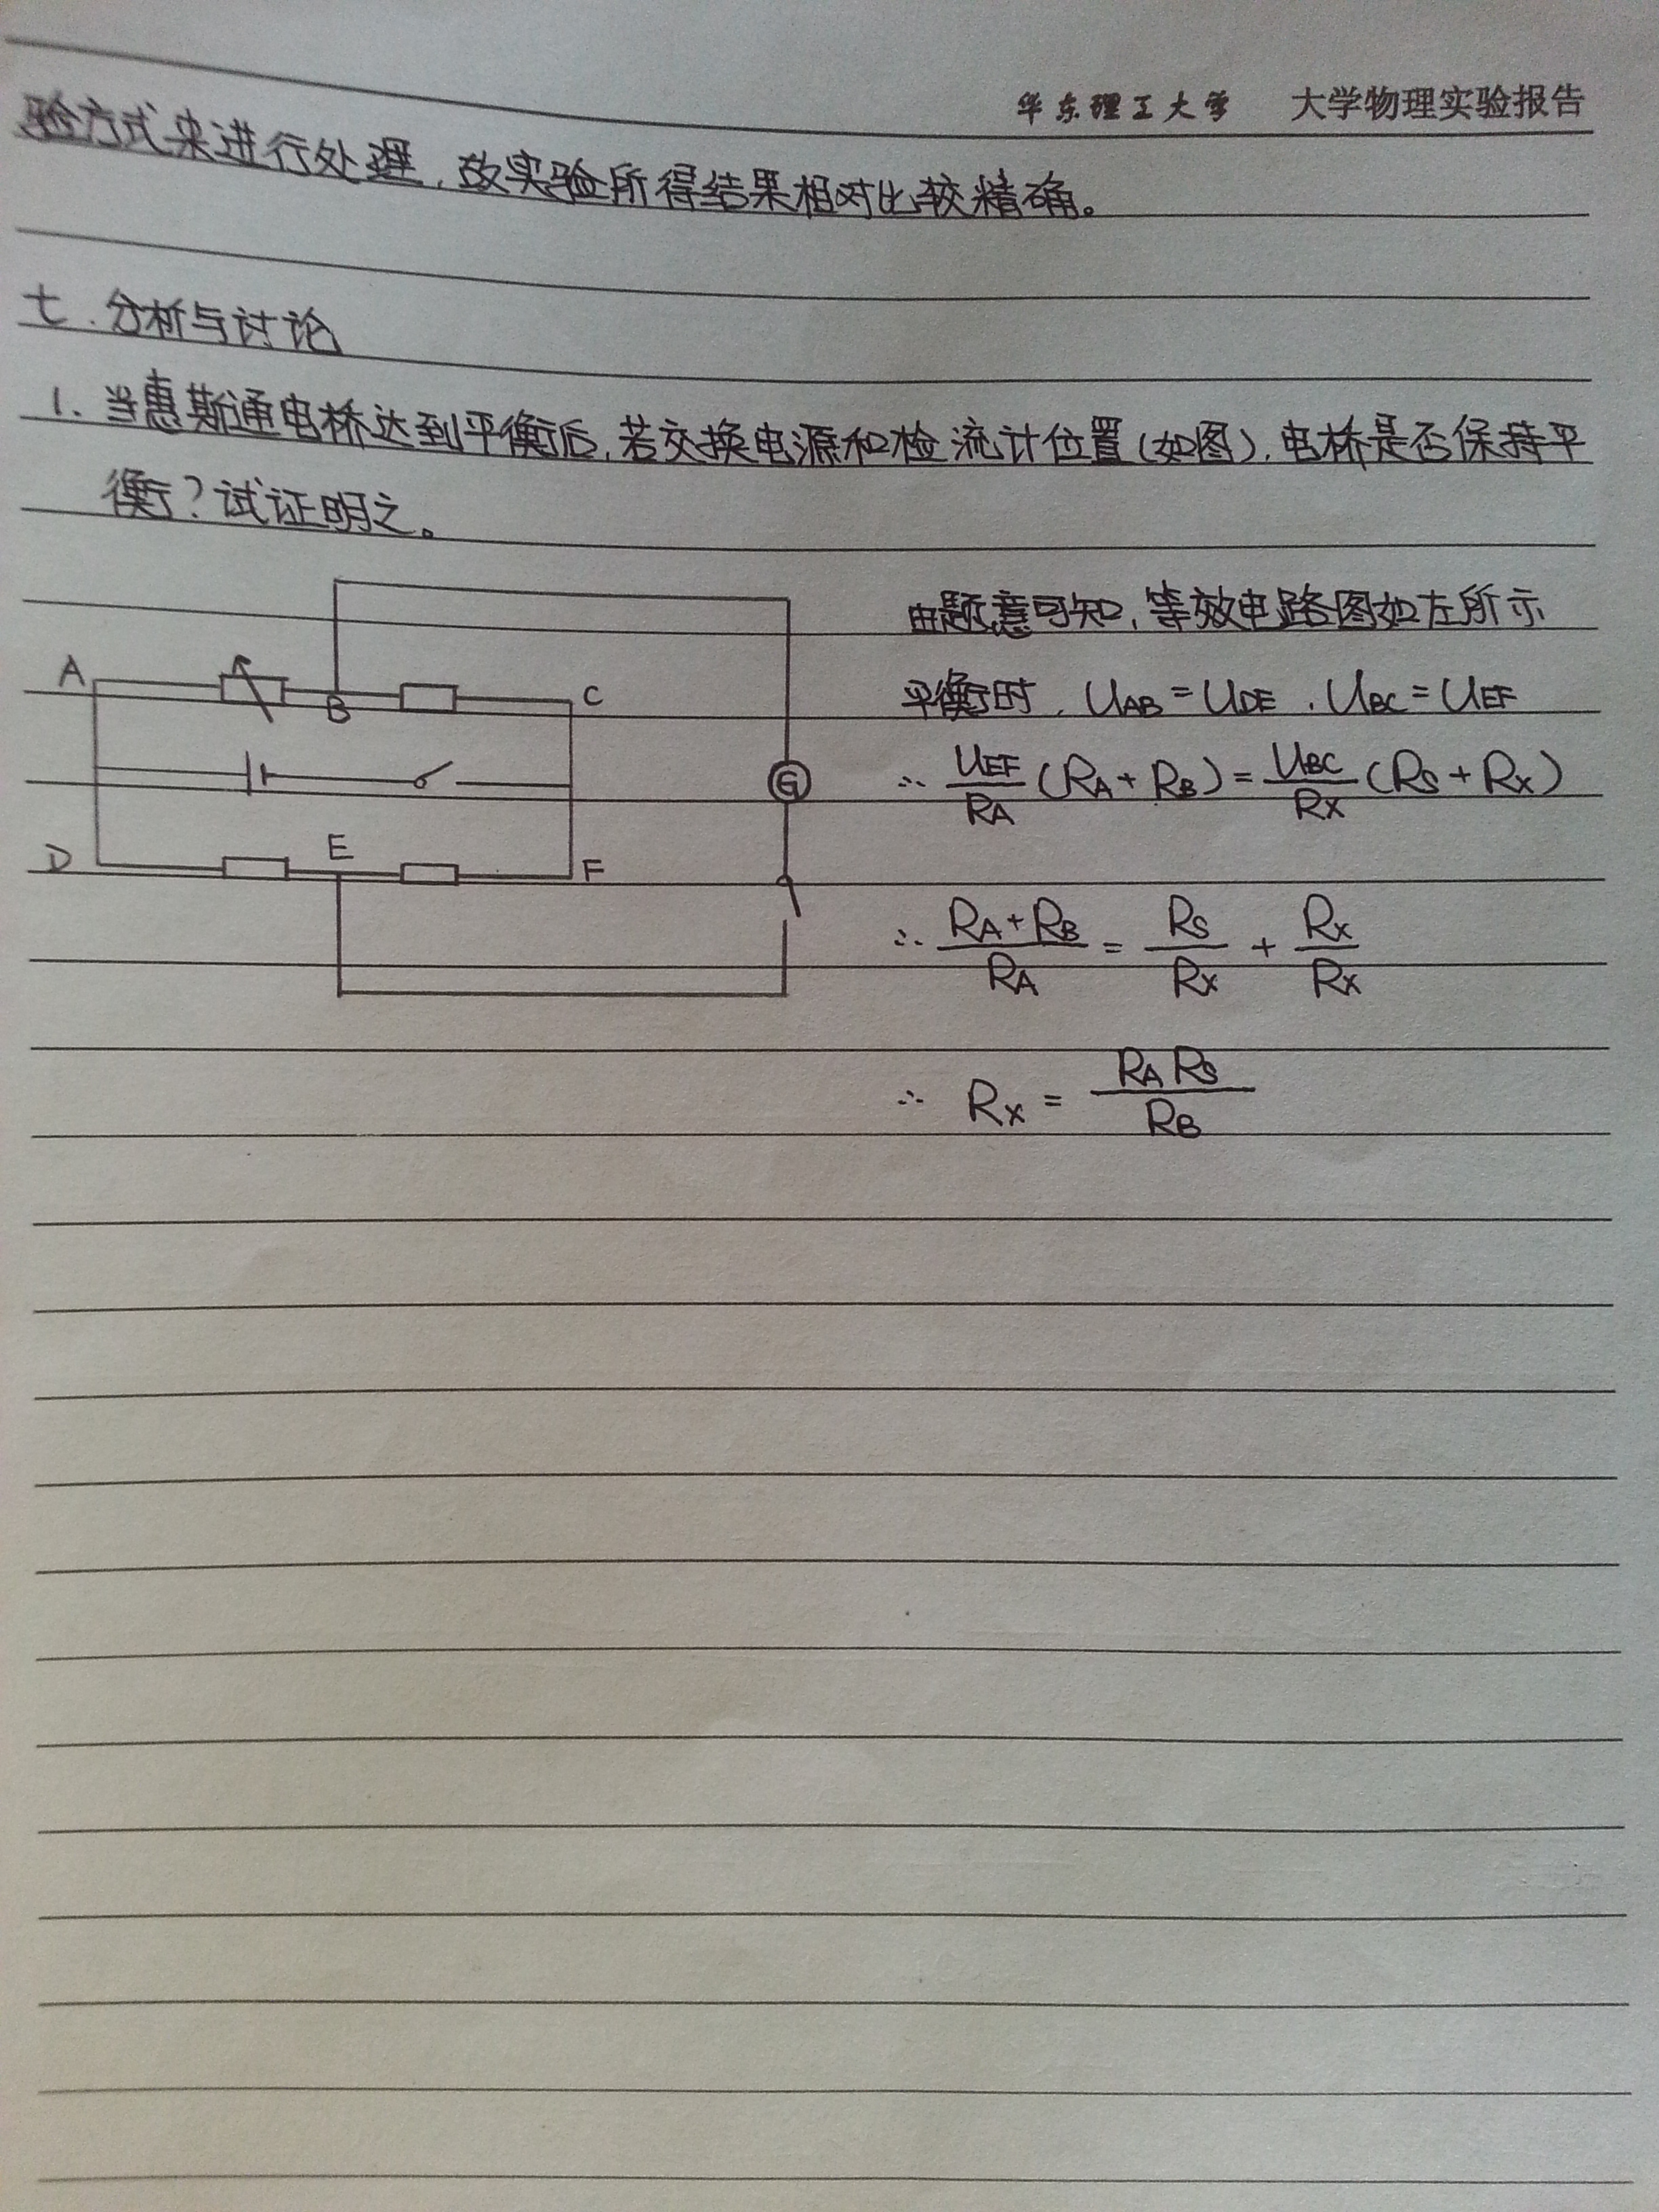 华东理工大学 大学物理实验报告
验方式来进行处理,故实验所得结果相对比较精确。
七.分析与讨论
1.当惠斯通电桥达到平衡后,若交换电源和检流计位置(如图),电桥是否保持平
衡?试证明之。
由题意可知,等效电路图如左所示
平衡时,UAB=UDE,UBC=UEF
∴ UEF/RA (RA+RB) = UBC/RX (RS+RX)
∴ (RA+RB)/RA = RS/RX + RX/RX
∴ RX = RARS/RB
A
B
C
G
D
E
F